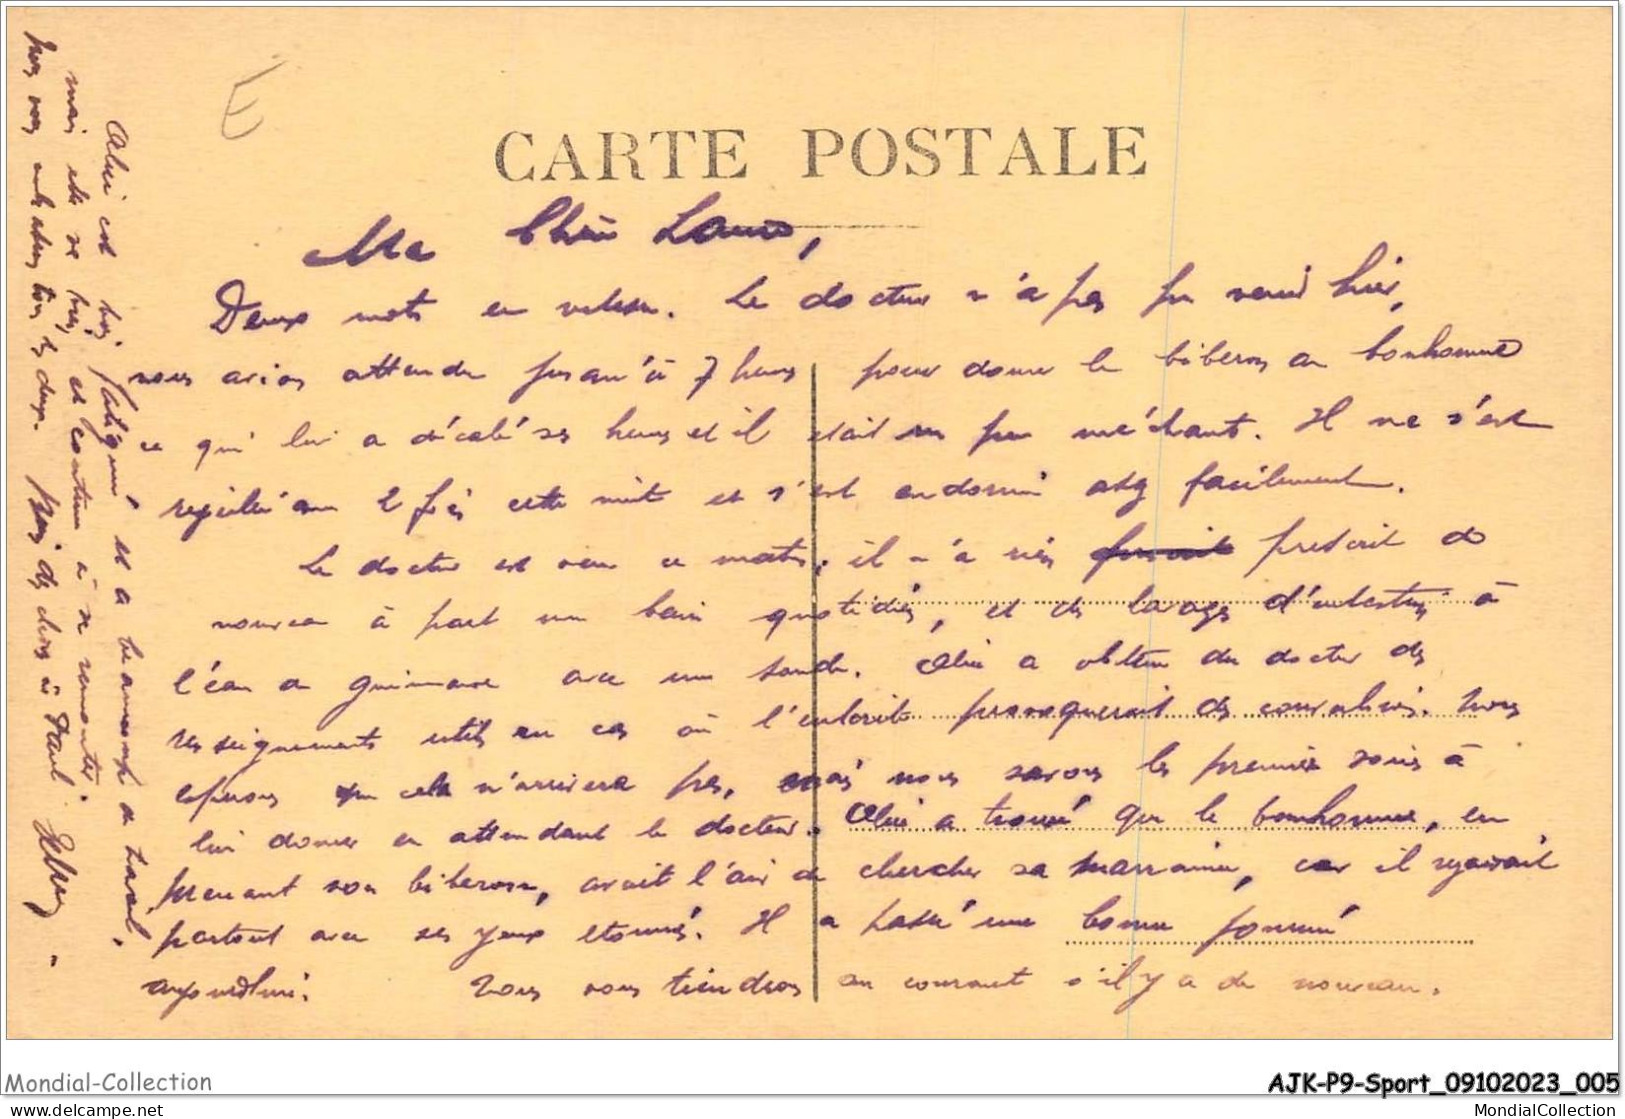 CARTE POSTALE
Ma Chère Laure,
Deux mots en vitesse. Le docteur n'a pas pu venir hier,
nous avions attendu jusqu'à 7 heures pour donner le biberon au bonhomme
ce qui lui a décalé ses heures et il était un peu méchant. Il ne s'est
réveillé que 2 fois cette nuit et s'est endormi assez facilement.
Le docteur est venu ce matin, il n'a rien prescrit de
nouveau à part un bain quotidien, et des lavages d'intestins à
l'eau de guimauve avec une sonde. Alice a obtenu du docteur des
renseignements utiles au cas où l'entérite provoquerait des convulsions. Nous
espérons que cela n'arrivera pas, mais nous savons les premiers soins à
lui donner en attendant le docteur. Alice a trouvé que le bonhomme, en
prenant son biberon, avait l'air de chercher sa marraine, car il regardait
partout avec ses yeux étonnés. Il a passé une bonne journée
aujourd'hui. Nous vous tiendrons au courant s'il y a du nouveau.
Alice est très fatiguée et a beaucoup de travail,
mais elle se et continue à se remonter.
Nous vous embrassons tous les deux. Bien des choses à Paul
Mondial-Collection
AJK-P9-Sport_09102023_005
www.delcampe.net
MondialCollection